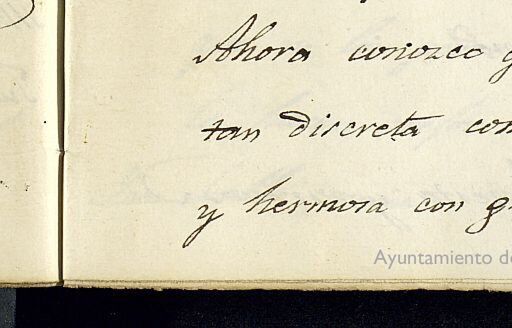 Ahora conozco q
tan discreta com
y hermosa con g
Ayuntamiento de